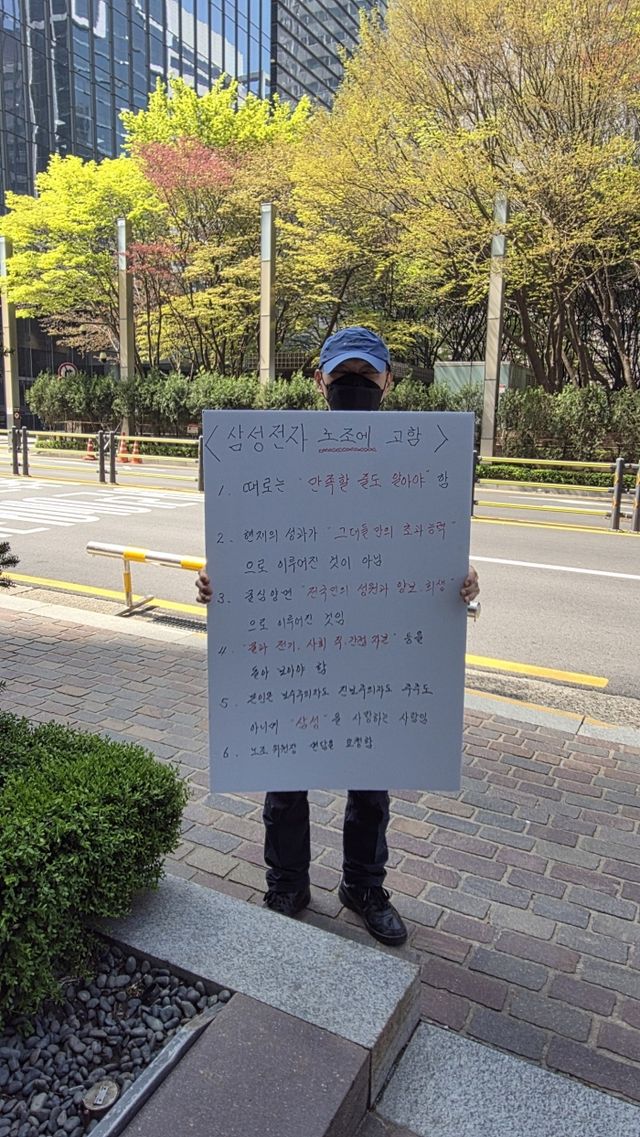 <삼성전자 노조에 고함>
1. 때로는 "만족할 줄도 알아야" 함
2. 현재의 성과가 "그대들만의 초과능력"
으로 이루어진 것이 아님
3. 중심양연 "전국민의 성원과 양보.희생"
으로 이루어진 것임
4. "물과 전기, 사회 직.간접 자본" 등을
돌아 보아야 함
5. 본인은 보수주의자도 진보주의자도 주주도
아니며 "삼성"을 사랑하는 사람임
6. 노조 위원장 면담을 요청함